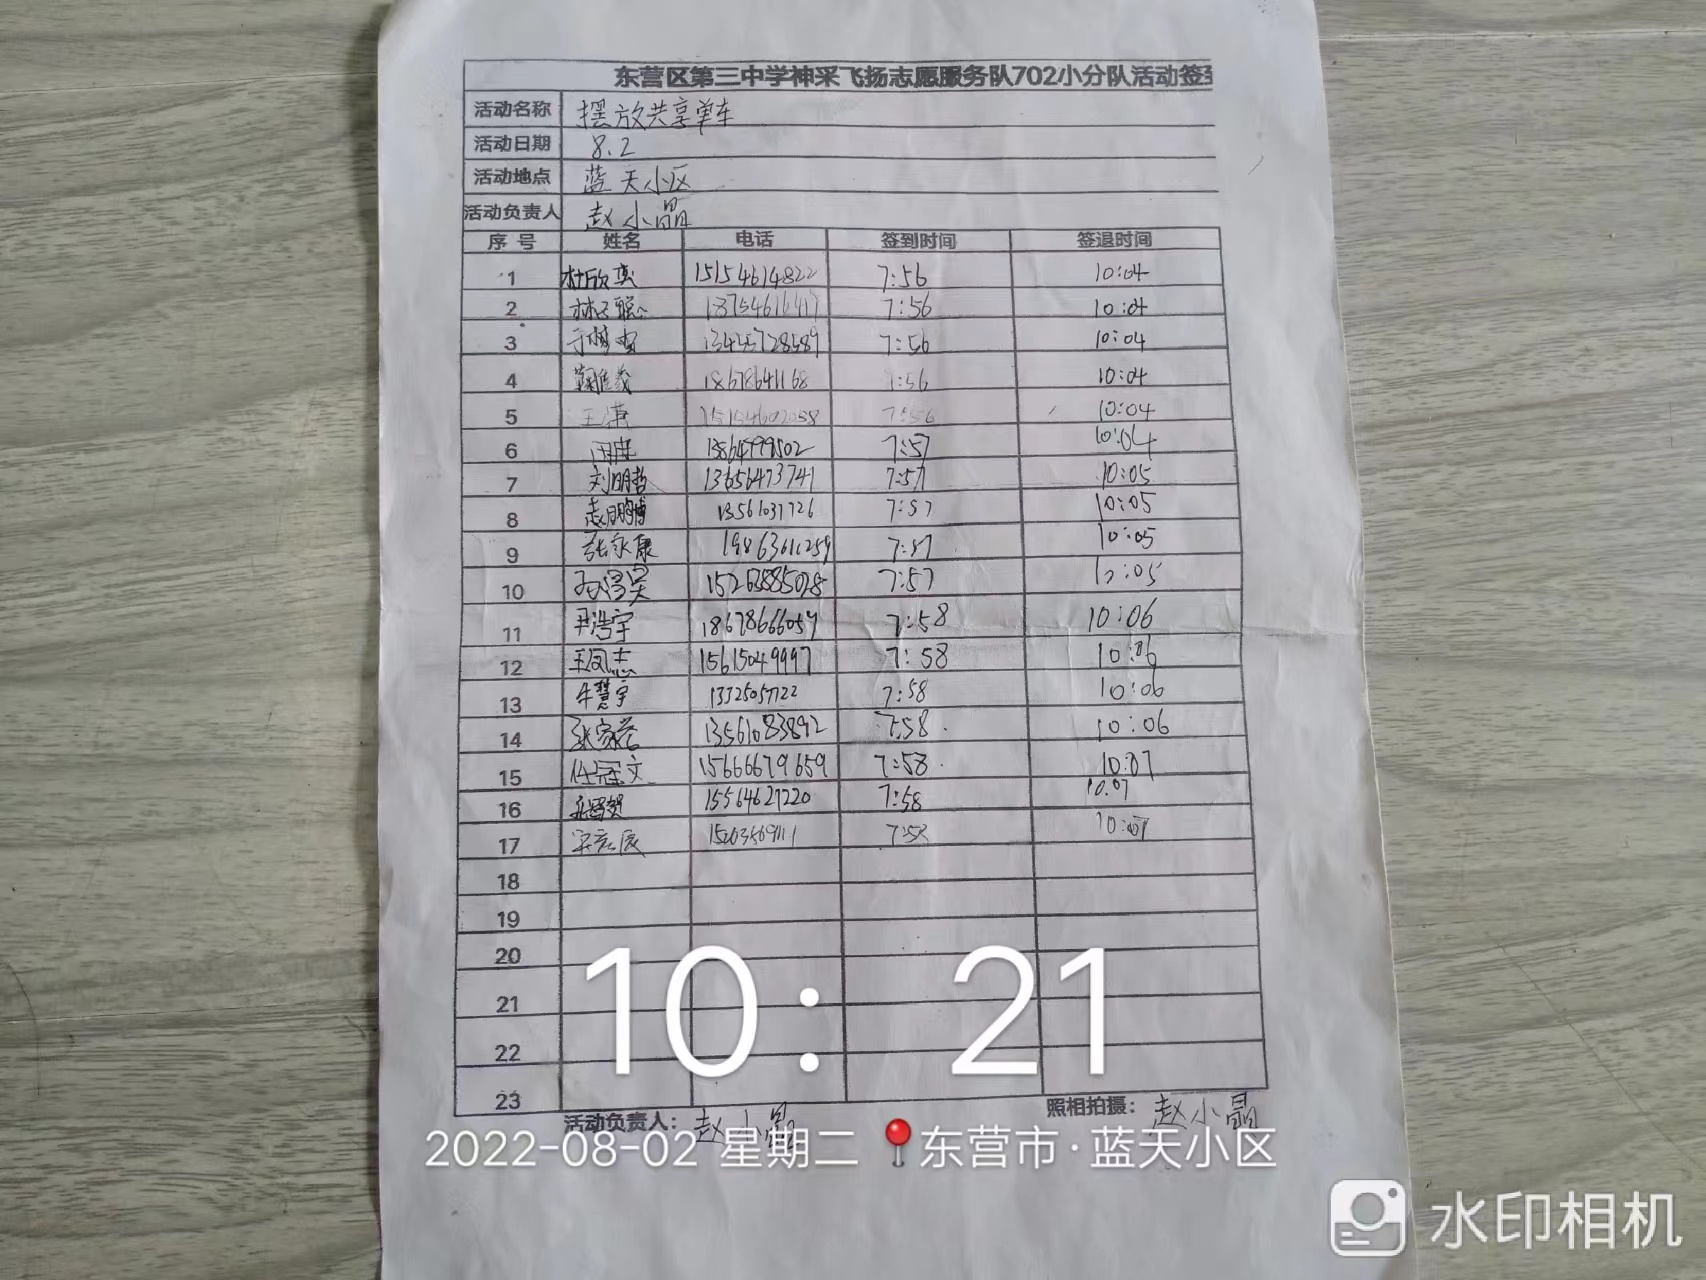 东营区第三中学神采飞扬志愿服务队702小分队活动签到
活动名称 摆放共享单车
活动日期 8.2
活动地点 蓝天小区
活动负责人 赵小晶
序号 姓名 电话 签到时间 签退时间
1 15154614822 7:56 10:04
2 7:56 10:04
3 7:56 10:04
4 18678641168 7:56 10:04
5 王潇 7:56 10:04
6 7:57 10:04
7 刘明哲 13656473741 7:57 10:05
8 赵鹏博 13561031726 7:57 10:05
9 张永康 19863611259 7:57 10:05
10 15263885028 7:57 10:05
11 尹浩宇 18678666057 7:58 10:06
12 15615049997 7:58 10:06
13 牛慧宇 13325057122 7:58 10:06
14 13561083892 7:58 10:06
15 任冠文 15666679659 7:58 10:07
16 15564627220 7:58 10:07
17 10:07
18
19
20
21
22
23
活动负责人: 赵小晶 照相拍摄: 赵小晶
10:21
2022-08-02 星期二 东营市·蓝天小区
水印相机